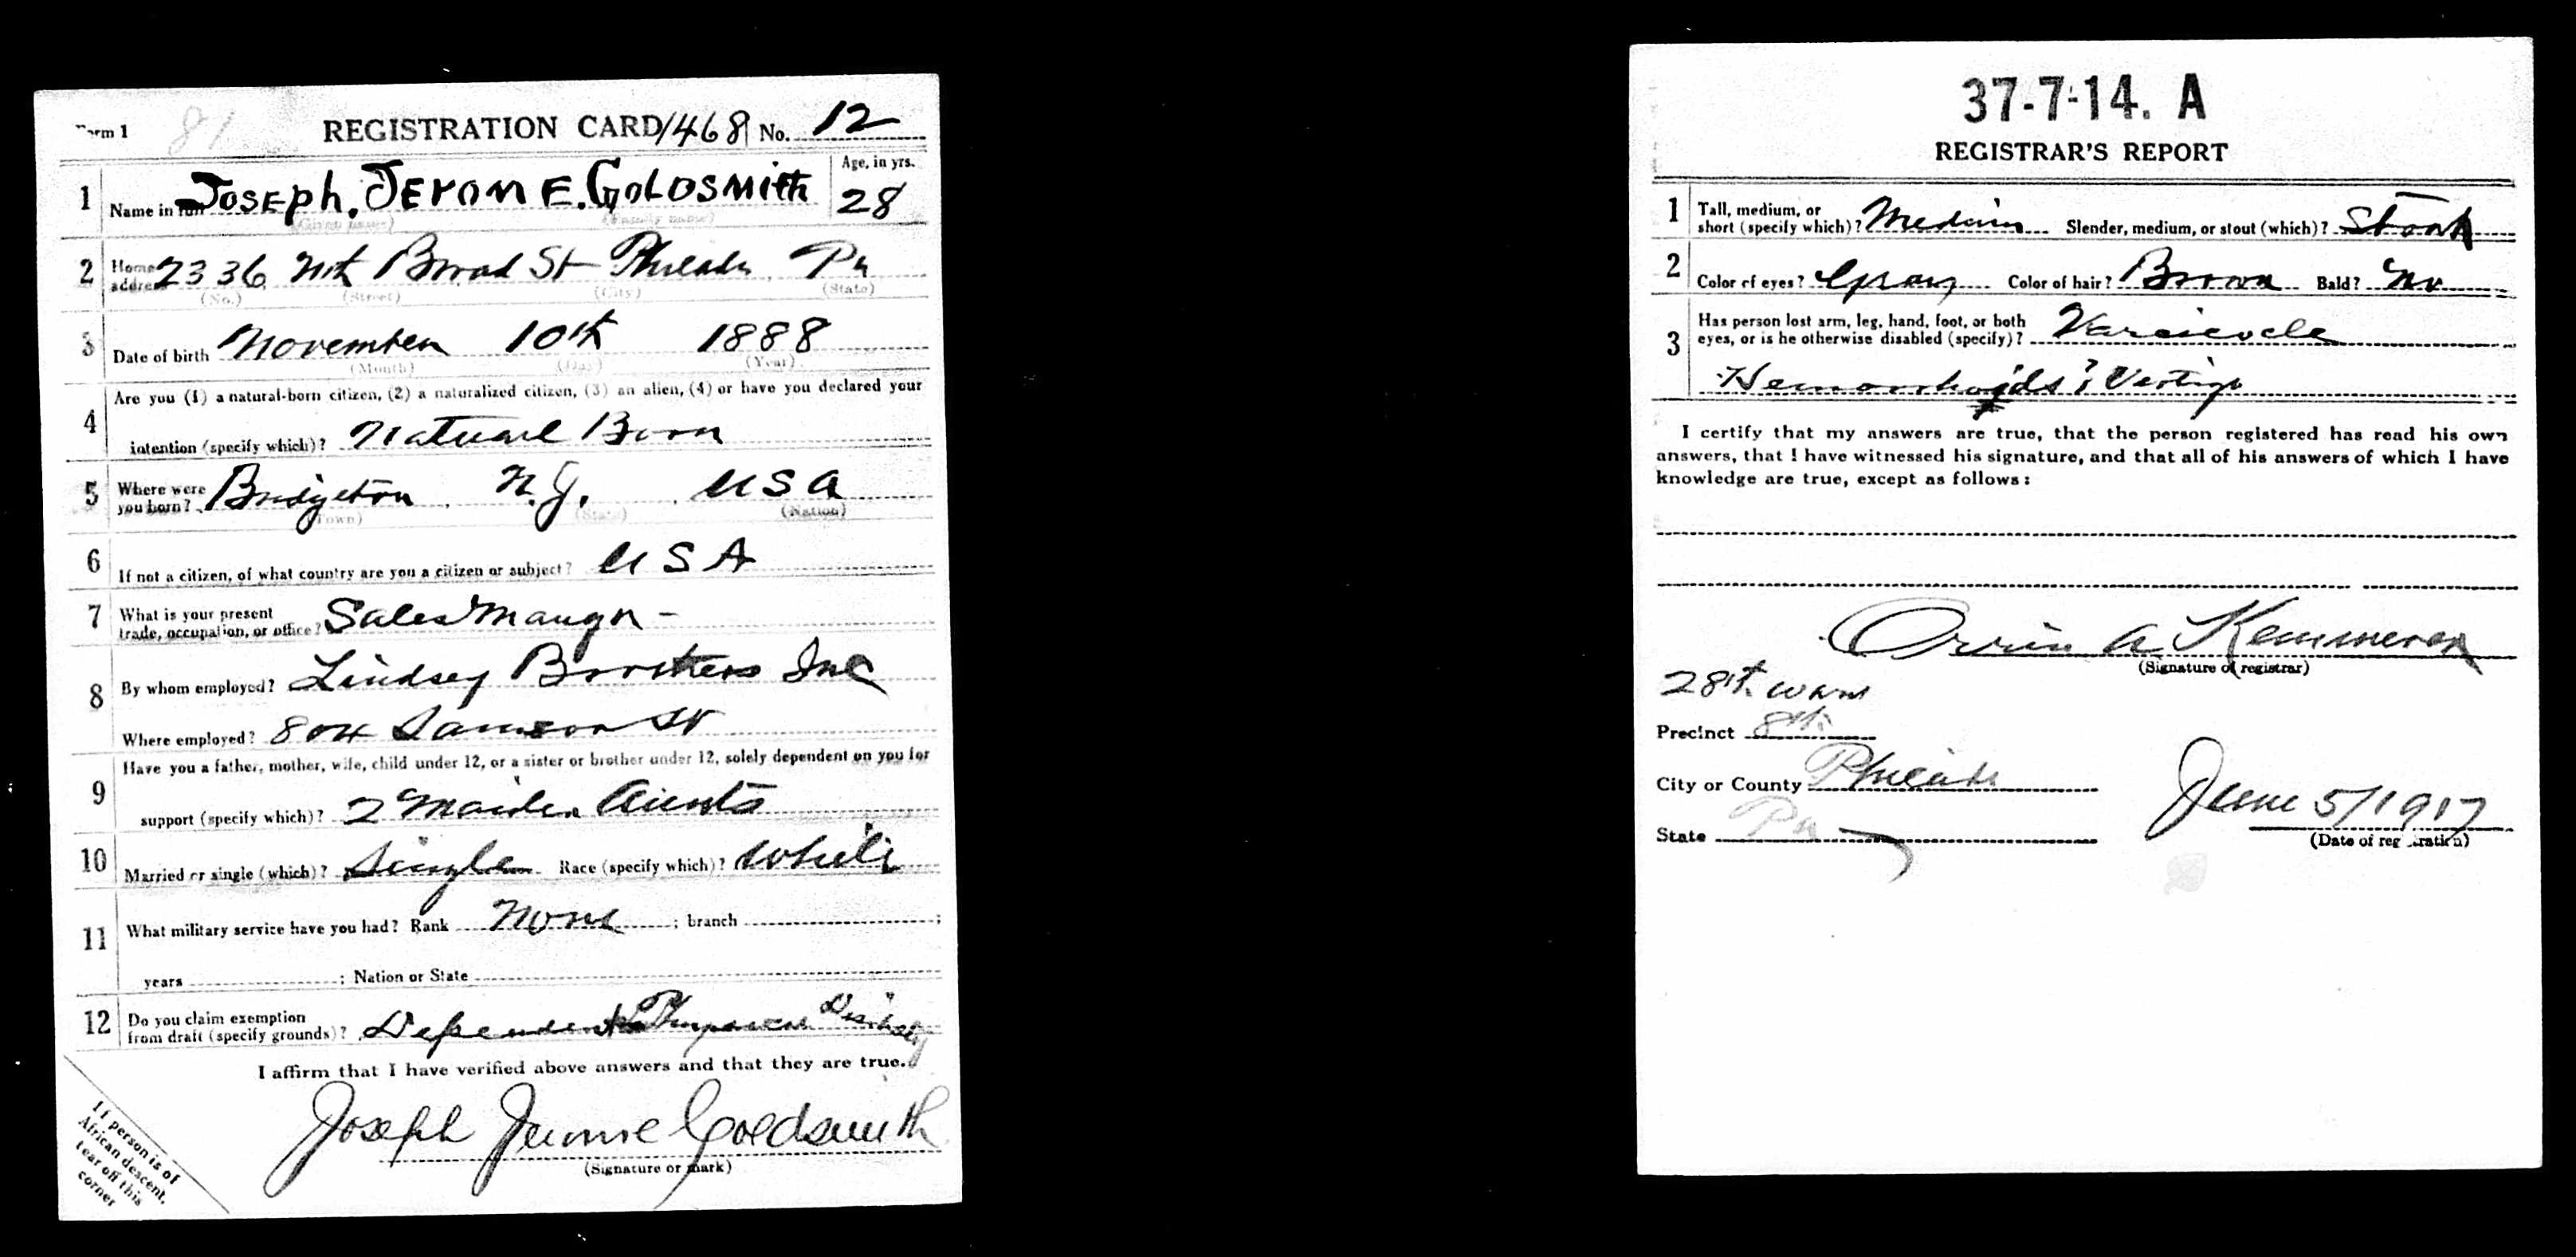 Form 1 81 REGISTRATION CARD 1468 No. 12
1 Name in full Joseph. Jerome. Goldsmith Age, in yrs. 28
(Given name) (Family name)
2 Home address 2336 Nth Broad St Philada Pa
(No.) (Street) (City) (State)
3 Date of birth November 10th 1888
(Month) (Day) (Year)
4 Are you (1) a natural-born citizen, (2) a naturalized citizen, (3) an alien, (4) or have you declared your
intention (specify which)? Natural Born
5 Where were you born? Bridgeton, N.J. USA
(Town) (State) (Nation)
6 If not a citizen, of what country are you a citizen or subject? USA
7 What is your present
trade, occupation, or office? Sales Mangr -
8 By whom employed? Lindsey Brothers Inc
Where employed? 804 Sansom St
9 Have you a father, mother, wife, child under 12, or a sister or brother under 12, solely dependent on you for
support (specify which)? 2 Maiden Aunts
10 Married or single (which)? Single Race (specify which)? White
11 What military service have you had? Rank None ; branch ;
years ; Nation or State
12 Do you claim exemption
from draft (specify grounds)? Dependents Physical
I affirm that I have verified above answers and that they are true.
Joseph Jerome Goldsmith
(Signature or mark)
If person is of
African descent,
tear off this
corner
37-7-14. A
REGISTRAR'S REPORT
1 Tall, medium, or
short (specify which)? Medium Slender, medium, or stout (which)? Stout
2 Color of eyes? Gray Color of hair? Brown Bald? No
3 Has person lost arm, leg, hand, foot, or both
eyes, or is he otherwise disabled (specify)? Varicocele
Hemorrhoids & Vertigo
I certify that my answers are true, that the person registered has read his own
answers, that I have witnessed his signature, and that all of his answers of which I have
knowledge are true, except as follows:
A Kemmerer
(Signature of registrar)
28th ward
Precinct 8th
City or County Philada
State Pa
June 5/1917
(Date of registration)